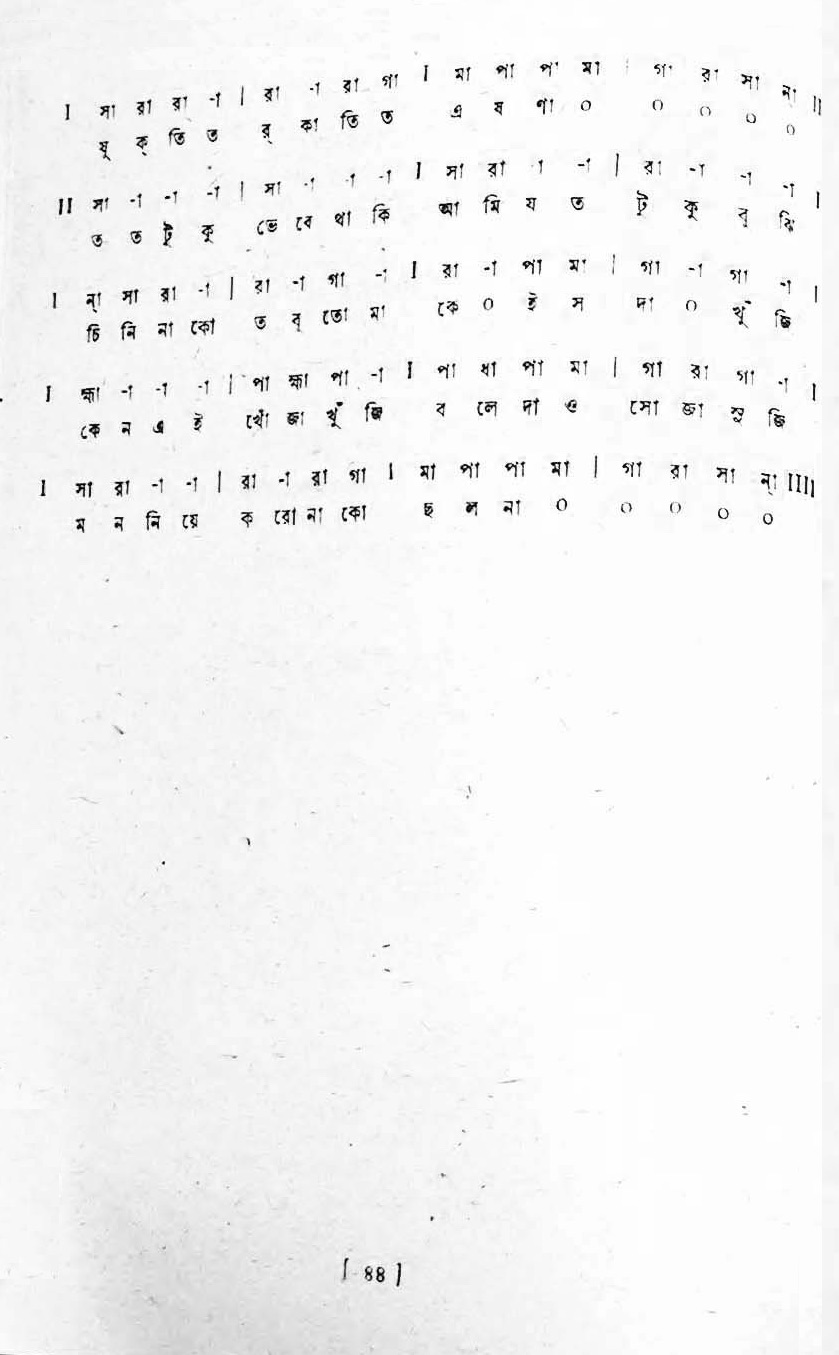 I সা রা রা -া | রা -া রা গা I মা পা পা মা | গা রা সা ন্‌া II
যু ক্ তি ত র্ কা তি ত এ ষ ণা ০ ০ ০ ০ ০
II সা -া -া -া | সা -া -া -া I সা রা -া -া | রা -া -া -া I
ত ত টু কু ভে বে থা কি আ মি য ত টু কু বু ঝি
I ন্‌া সা রা -া | রা -া গা -া I রা -া পা মা | গা -া গা -া I
চি নি না কো ত বু তো মা কে ০ ই স দা ০ খুঁ জি
I হ্মা -া -া -া | পা হ্মা পা -া I পা ধা পা মা | গা রা গা -া I
কে ন এ ই খোঁ জা খুঁ জি ব লে দা ও সো জা সু জি
I সা রা -া -া | রা -া রা গা I মা পা পা মা | গা রা সা ন্‌া IIII
ম ন নি য়ে ক রো না কো ছ ল না ০ ০ ০ ০ ০
[ ৪৪ ]